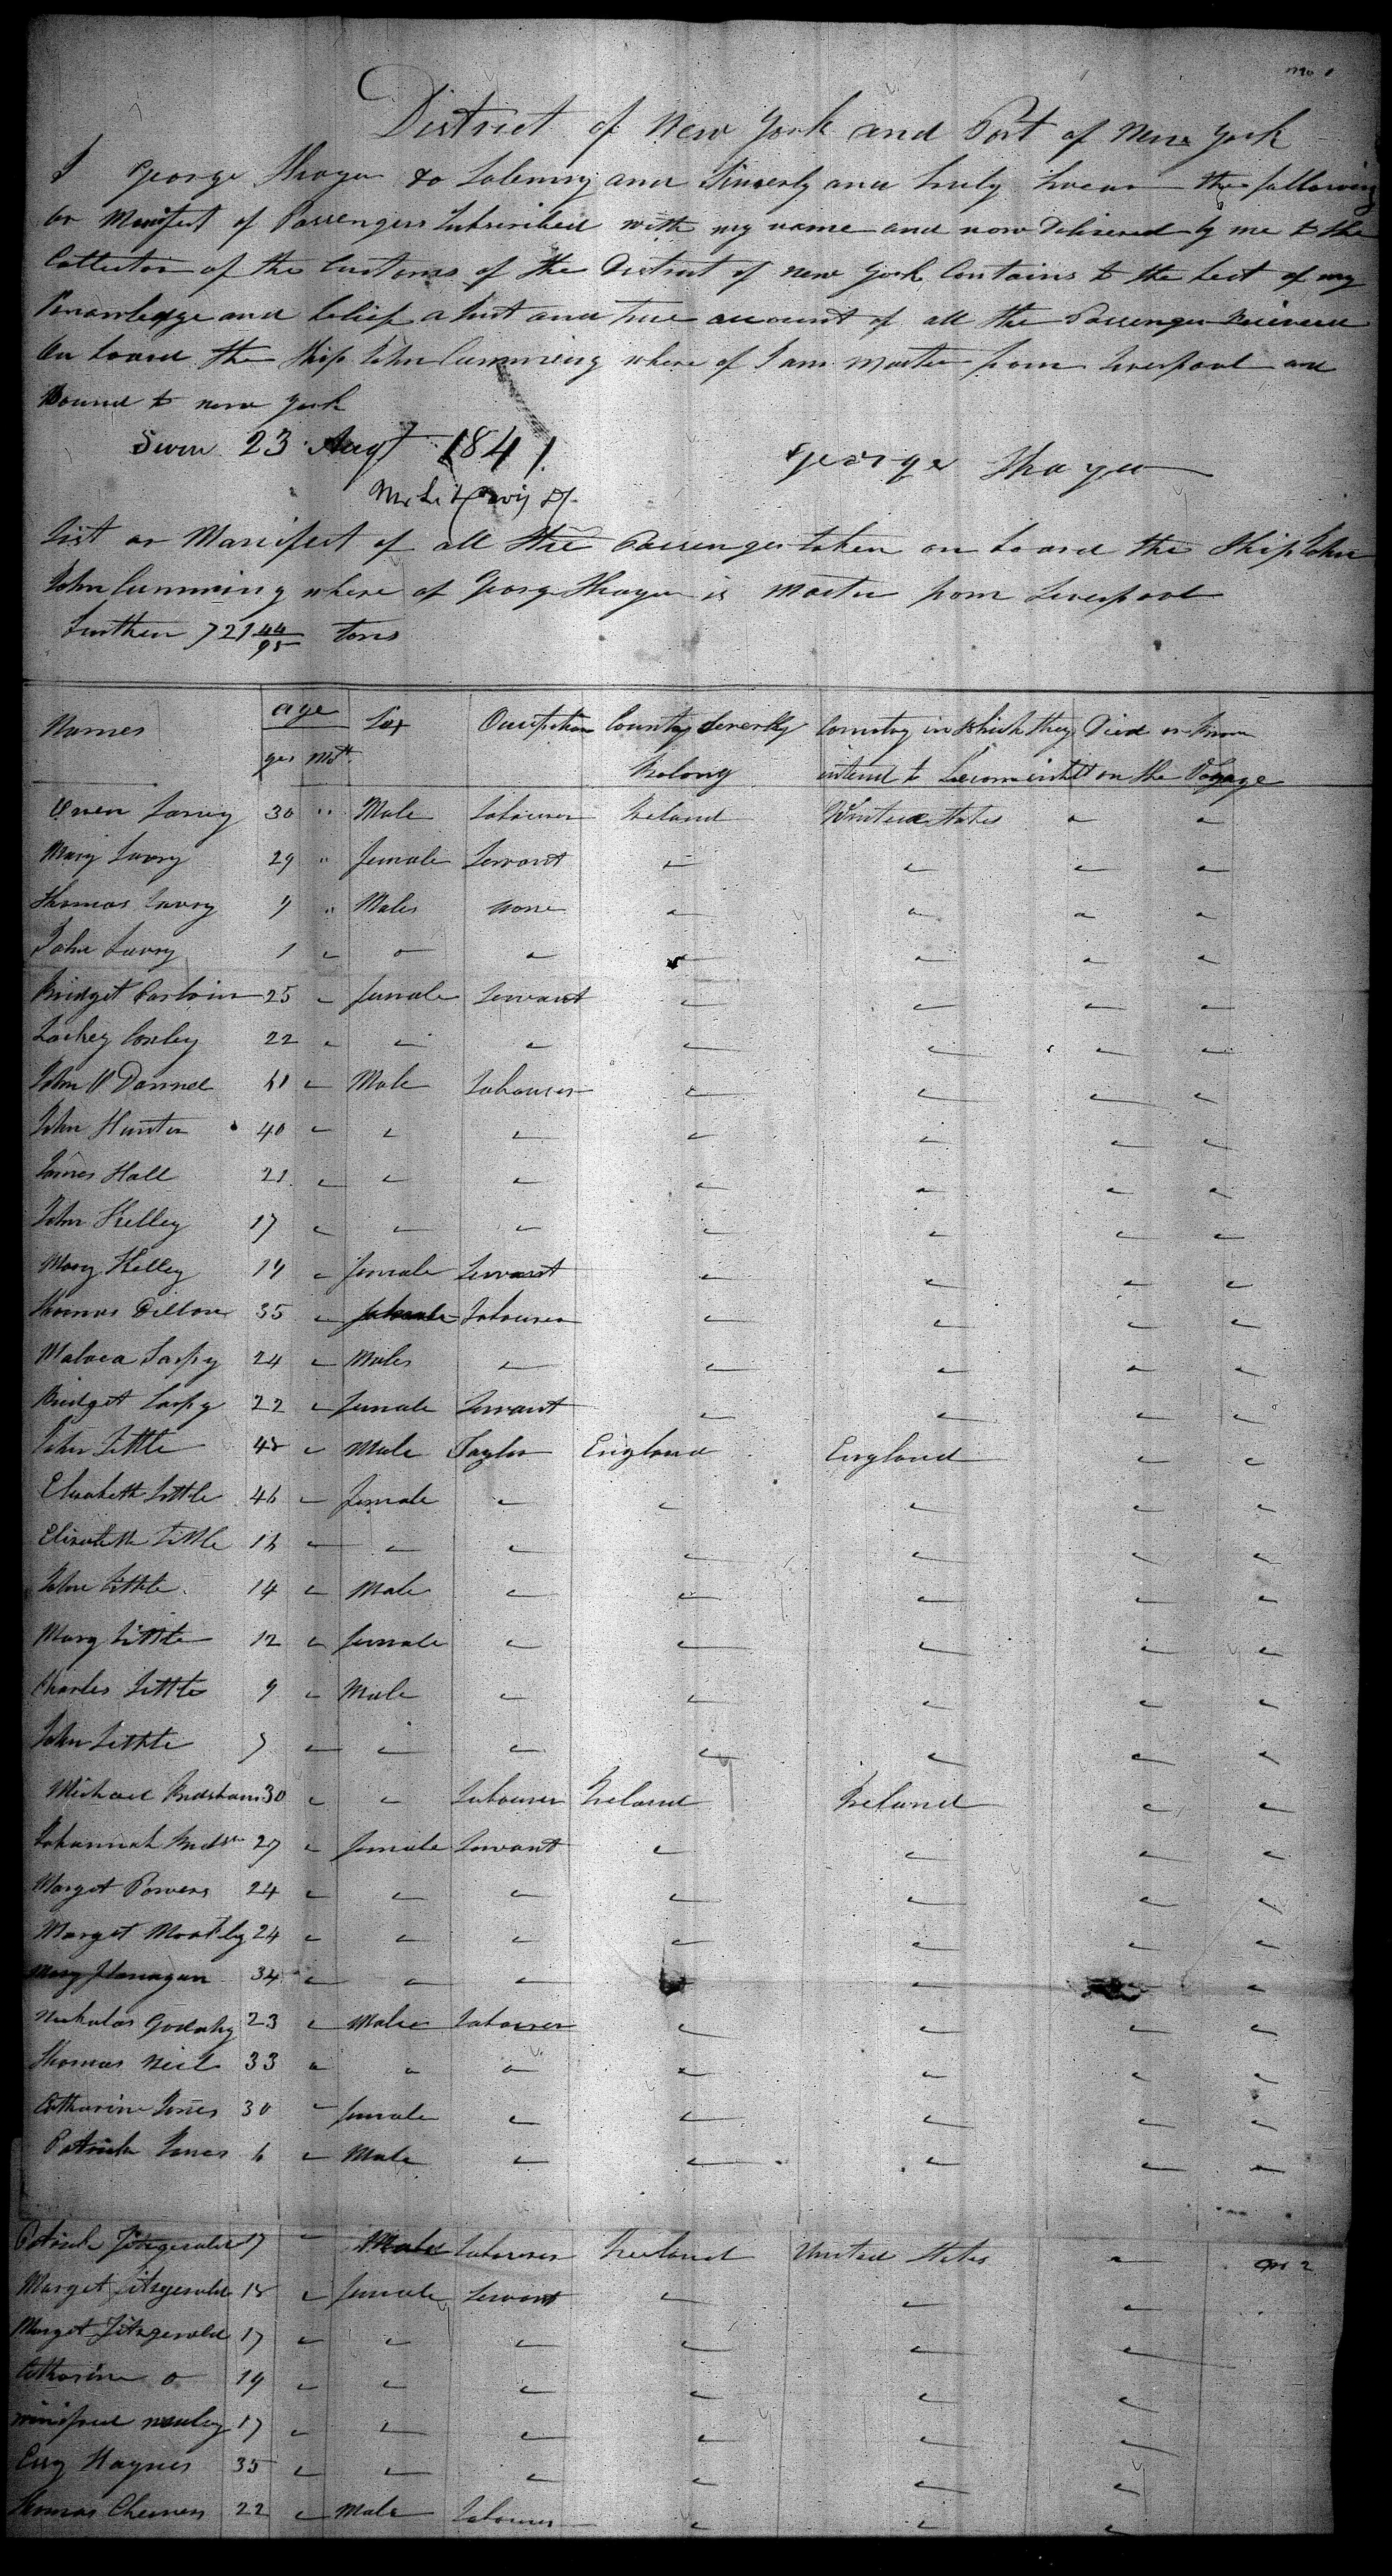 No 1
District of New York and Port of New York
I George Thayer do Solemny and Sincerly and truly Swear the following
or Manifest of Passengers Subscribed with my name and now Delivered by me to the
Collector of the Customs of the District of New York Contains to the best of my
Knowledge and belief a Just and true account of all the Passenger Received
On board the Ship John Cumming where of I am Master from Liverpool and
Bound to new York
Sworn 23 Augt 1841.
George Thayer
List or Manifest of all the Passenger taken on board the Ship John
John Cumming where of George Thayer is Master from Liverpool
Burthen 721 44/95 tons
Names age Sex Occupation Country Severly Country in which they Died or
yrs mth Belong intend to become inhbt on the Voyage
Owen 30 " Male Labourer Ireland United States " "
Mary Lavry 29 " female Servant " " " "
Thomas Lavry 9 " Males none " " " "
John Lavry 1 " " " " " " "
Bridget 25 " female Servant " " " "
22 " " " " " " "
John O Donnel 41 " Male Labourer " " " "
John Hunter 40 " " " " " " "
James Hall 21 " " " " " " "
John Kelley 17 " " " " " " "
Mary Kelley 19 " female Servant " " " "
Thomas Dillon 35 " Labourer " " " "
24 " Males " " " " "
Bridget 22 " female Servant " " " "
John Little 48 " Male Taylor England England " "
Elizabeth Little 46 " female " " " " "
Elizabeth Little 16 " " " " " " "
John Little 14 " Male " " " " "
Mary Little 12 " female " " " " "
Charles Little 9 " Male " " " " "
John Little 7 " " " " " " "
Michael 30 " " Labourer Ireland Ireland " "
Johannah 27 " female Servant " " " "
Marget Powers 24 " " " " " " "
Marget 24 " " " " " " "
Mary Flanagan 34 " " " " " " "
Nicholas 23 " Male Labourer " " " "
Thomas Neil 33 " " " " " " "
Catharine Jones 30 " female " " " " "
Patrick Jones 6 " Male " " " " "
Patrick Fitzgerald 17 " Male Labourer Ireland United States " No 2
Marget Fitzgerald 18 " female Servant " " "
Marget Fitzgerald 17 " " " " " "
Catharine o 19 " " " " " "
17 " " " " " "
Haynes 35 " " " " " "
Thomas 22 " Male Labourer " " "